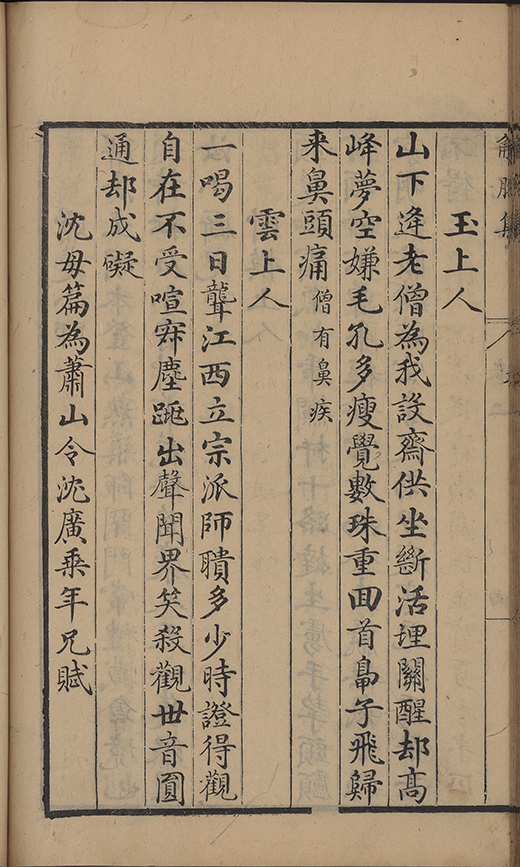 玉上人
山下逢老僧為我設齋供坐斷活埋關醒却高
峰夢空嫌毛孔多瘦覺數珠重回首鳥子飛歸
来鼻頭痛僧有鼻疾
雲上人
一喝三日聾江西立宗派師聵多少時證得觀
自在不受喧寂塵跳出聲聞界笑殺觀世音圓
通却成礙
沈母篇為蕭山令沈廣乘年兄賦